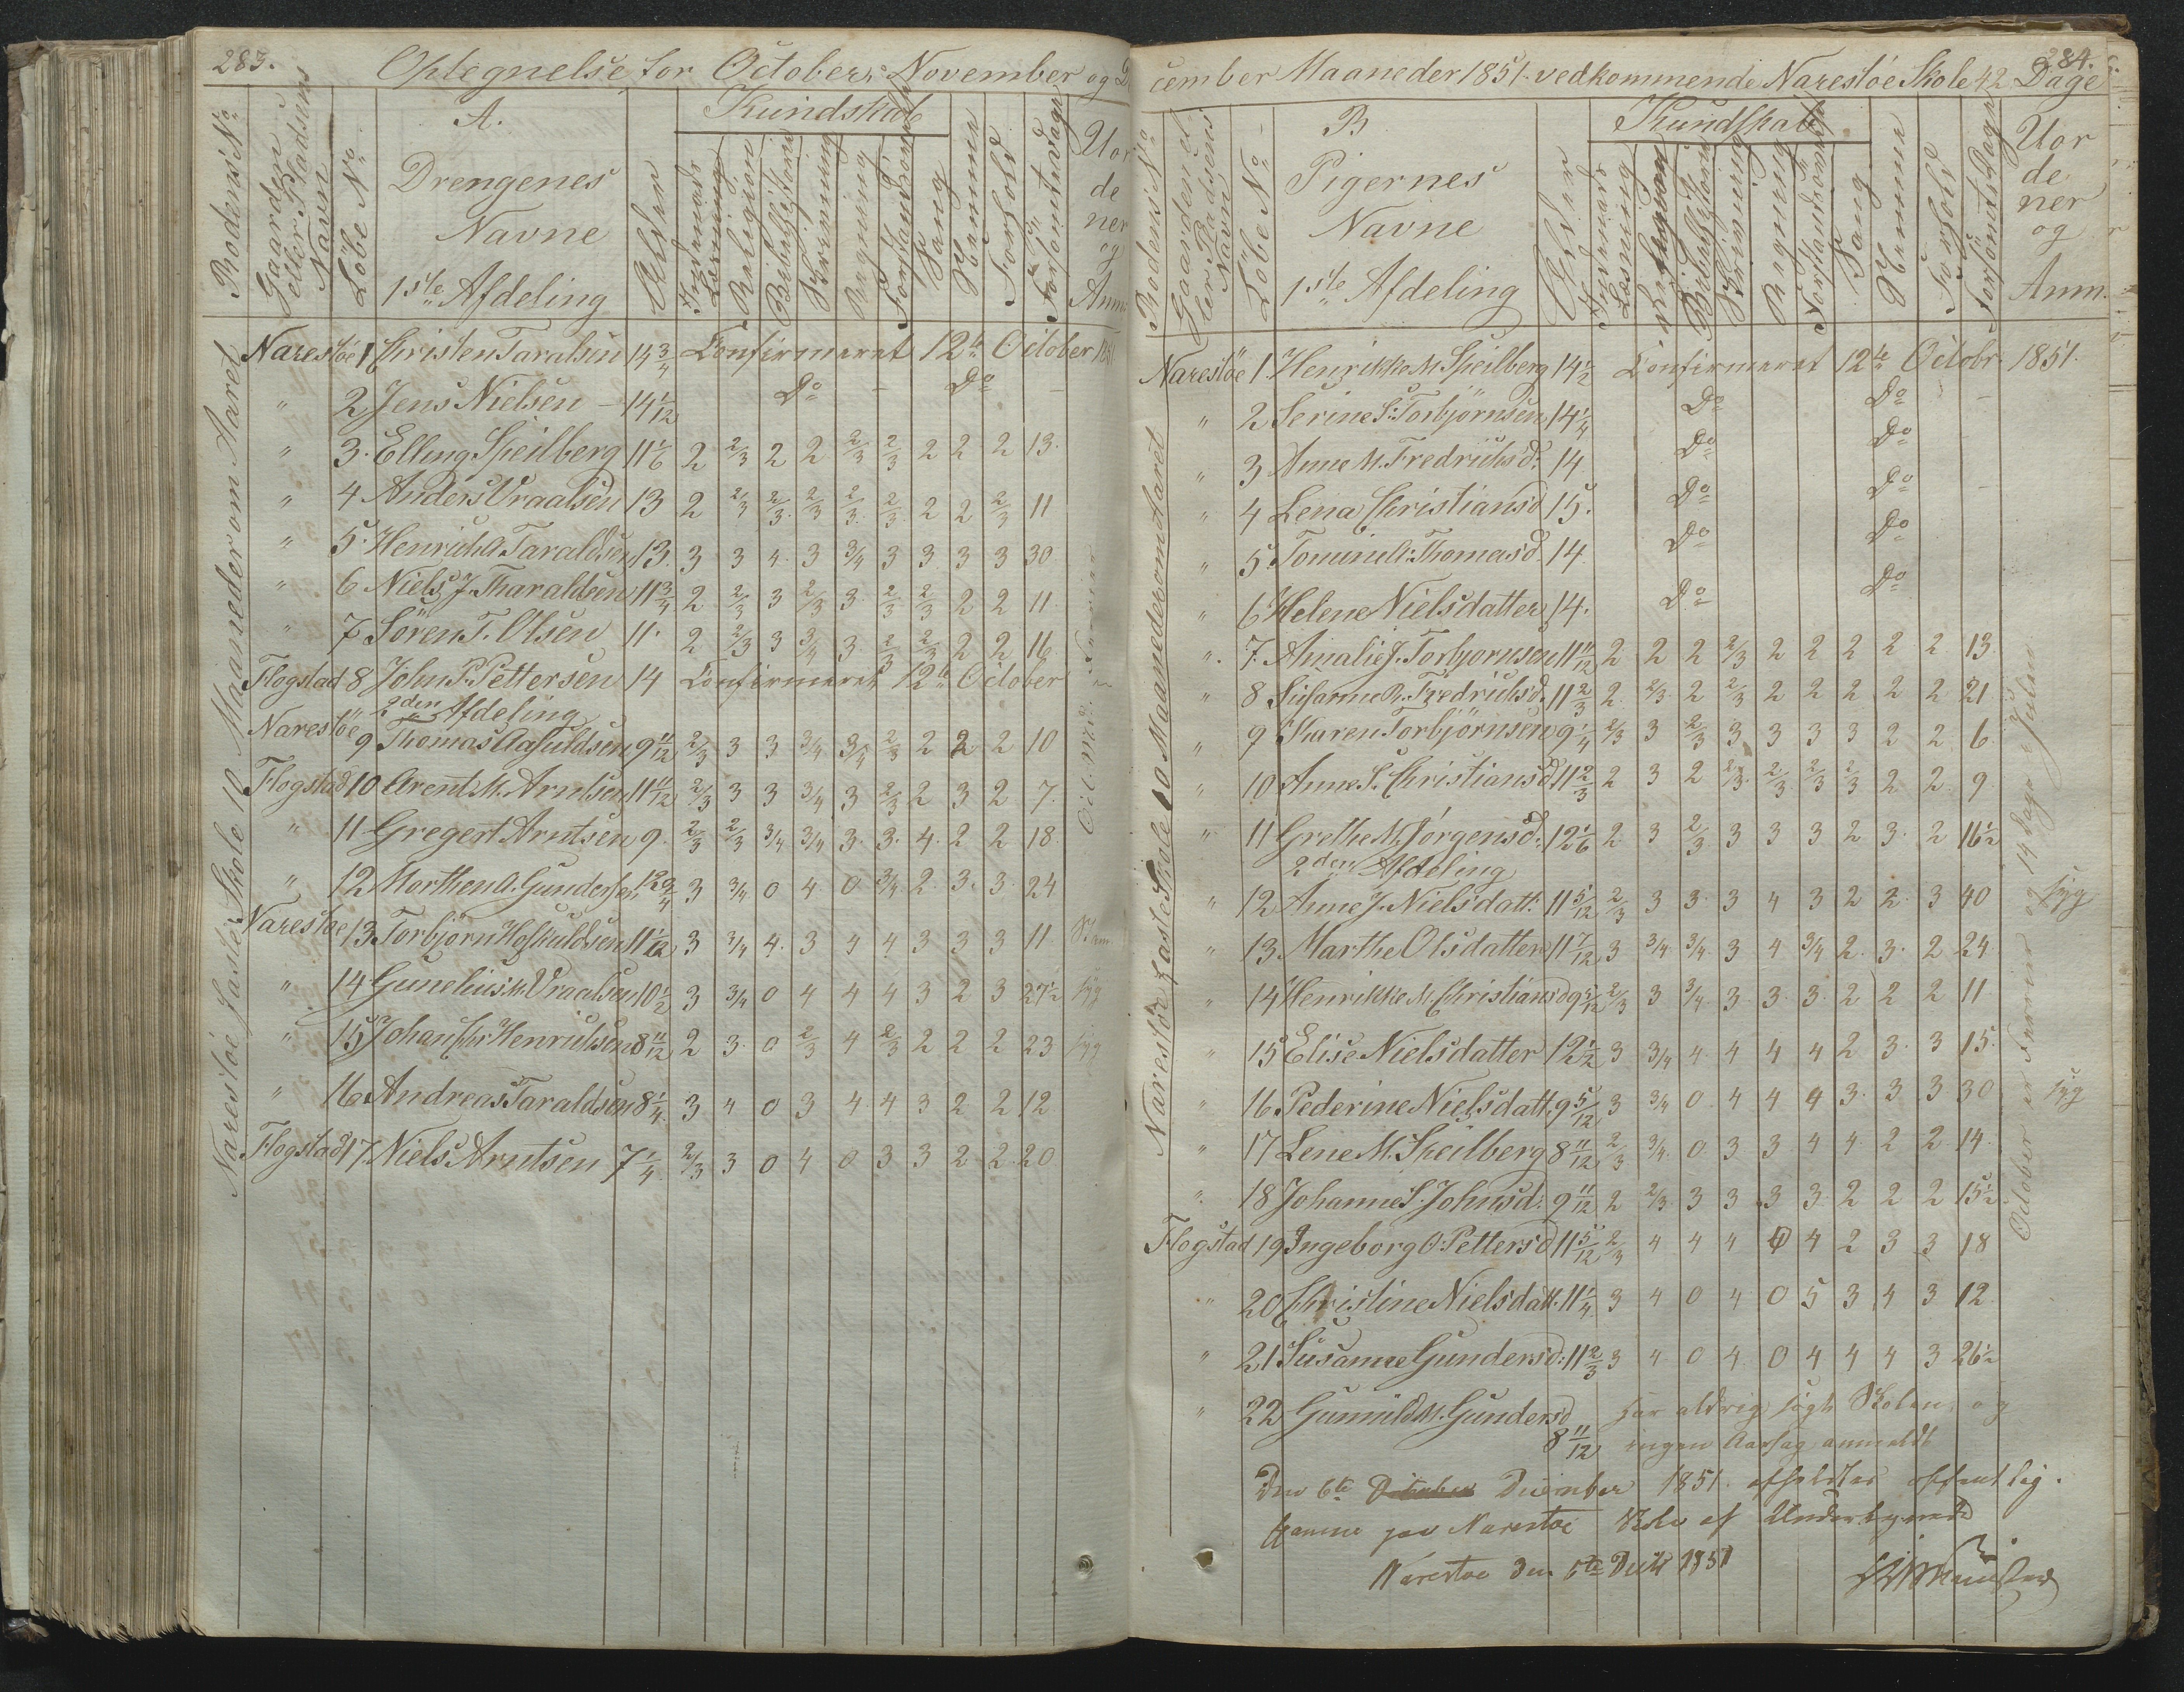 283.
Optegnelse for October, November og De
Rodens No
Gaardens eller Pladsens Navn
Löbe No
A.
Drengenes
Navne
1ste Afdeling
Alder
Kundskab
Indenads Læsning
Religion
Bibelhistorie
Skrivning
Regning
Forstandsövelse
Sang
Nemme
Forhold
Forsömte Dage
Uor
de
ner
og
Anm.
Narestöe faste Skole 10 Maaneder om Aaret
Narestöe 1 Christen Taralsen 14 3/4 Confirmeret 12te October 1851
" 2 Jens Nielsen 14 1/12 Do Do
" 3. Elling Speilberg 11 1/6 2 2/3 2 2 2/3 2/3 2 2 2 13.
" 4 Anders Vraalsen 13 2 2/3 2/3 2/3 2/3 2/3 2 2 2/3 11
" 5. Henrich A. Taraldsen 13. 3 3 4. 3 3/4 3 3 3 3 30
" 6 Niels J. Tharaldsen 11 3/4 2 2/3 3 2/3 3 2/3 2/3 2 2 11
" 7 Sören T. Olsen 11. 2 2/3 3 3/4 3 2/3 2/3 2 2 16
Flogstad 8 John P. Pettersen 14 Confirmeret 12te October
2den Afdeling
Narestöe 9 Thomas Aasuldsen 9 11/12 2/3 3 3 3/4 3/4 2/3 2 2 2 10
Flogstad 10 Arent M. Arntsen 11 11/12 2/3 3 3 3/4 3 2/3 2 3 2 7.
" 11 Gregert Arntsen 9. 2/3 2/3 3/4 3/4 3. 3. 4. 2 2 18
" 12 Morthen A. Gundersen 12 3/4 3 3/4 0 4 0 3/4 2. 3. 3. 24
Narestöe 13 Torbjörn Hoskuldsen 11 1/12 3 3/4 4. 3 4 4 3 3 3 11
" 14 Gunelius M. Vraalsen 10 1/2 3 3/4 0 4 4 4 3 2 3 27 1/2 syg
" 15 Johan Chr. Henrichsen 8 11/12 2 3. 0 2/3 4 2/3 2 2 2 23 syg
" 16. Andreas Taraldsen 8 1/4 3 4 0 3 4 4 3 2 2 12
Flogstad 17. Niels Arntsen 7 1/4 2/3 3 0 4 0 3 3 2 2 20
284.
cember Maaneder 1851. vedkommende Narestöe Skole 42 Dage
Rodens No
Gaardens eller Pladsens Navn
Löbe No
B
Pigernes
Navne
1ste Afdeling
Alder
Kundskab
Indenads Læsning
Religion
Bibelhistorie
Skrivning
Regning
Forstandsövelse
Sang
Nemme
Forhold
Forsömte Dage
Uor
de
ner
og
Anm.
Narestöe faste Skole 10 Maaneder om Aaret
Narestöe 1. Henrikke M. Speilberg 14 1/2 Confirmeret 12te Octobr. 1851.
" 2 Serine S. Torbjörnsen 14 1/4 Do Do
" 3 Anne M. Fredrichsd. 14 Do Do
" 4 Lena Christiansd 15. Do Do
" 5. Tomine A. Thomasd. 14. Do Do
" 6 Helene Nielsdatter 14. Do Do
" 7. Amalie J. Torbjornsen 11 11/12 2 2 2 2/3 2 2 2 2 2 13.
" 8 Susanne R. Fredrichsd. 11 2/3 2 2/3 2 2/3 2 2 2 2 2 21
" 9 Karen Torbjörnsen 9 1/4 2/3 3 2/3 3 3 3 3 2 2 6
" 10 Anne S. Christiansd 11 2/3 2 3 2 2/3 2/3 2/3 2/3 2 2 9
" 11 Grethe M. Jörgensd. 12 1/6 2 3 2/3 3 3 3 2 3. 2 16 1/2
2den Afdeling
" 12 Anne J. Nielsdatt. 11 5/12 2/3 3 3. 3 4 3 2 2. 3 40 syg
" 13. Marthe Olsdatter 11 7/12 3 3/4 3/4 3 4 3/4 2. 3. 2 24
" 14 Henrikke M. Christiansd 9 5/12 2/3 3 3/4 3. 3. 3. 2 2 2 11
" 15 Elise Nielsdatter 12 1/2 3 3/4 4 4 4 4 2 3. 3 15.
" 16. Pederine Nielsdatt. 9 5/12 3 3/4 0 4 4 4 3. 3 3 30 syg
" 17 Lene M. Speilberg 8 11/12 2/3 3/4 0 3 3 4 4 2 2 14.
" 18 Johanne S. Johnsd. 9 11/12 2 2/3 3 3 3 3 2 2 2 15 1/2
Flogstad 19 Ingeborg O. Pettersd 11 5/12 2/3 4 4 4 4 4 2 3 3 18
" 20 Christine Nielsdatt. 11 1/4 3 4 0 4 0 5 3 4 3 12
" 21 Susanne Gundersd: 11 2/3 3 4 0 4 0 4 4 4 3 26 1/2
" 22 Gunnild M. Gundersd 8 11/12 har aldrig sögt Skolen, og
ingen Aarsag anmeldt
October er Ferier og 14 Dage i Julen
Den 6te December 1851. afholdtes offentlig
Examen paa Narestöe Skole af Undertegnede
Narestöe den 6te Decbr 1851